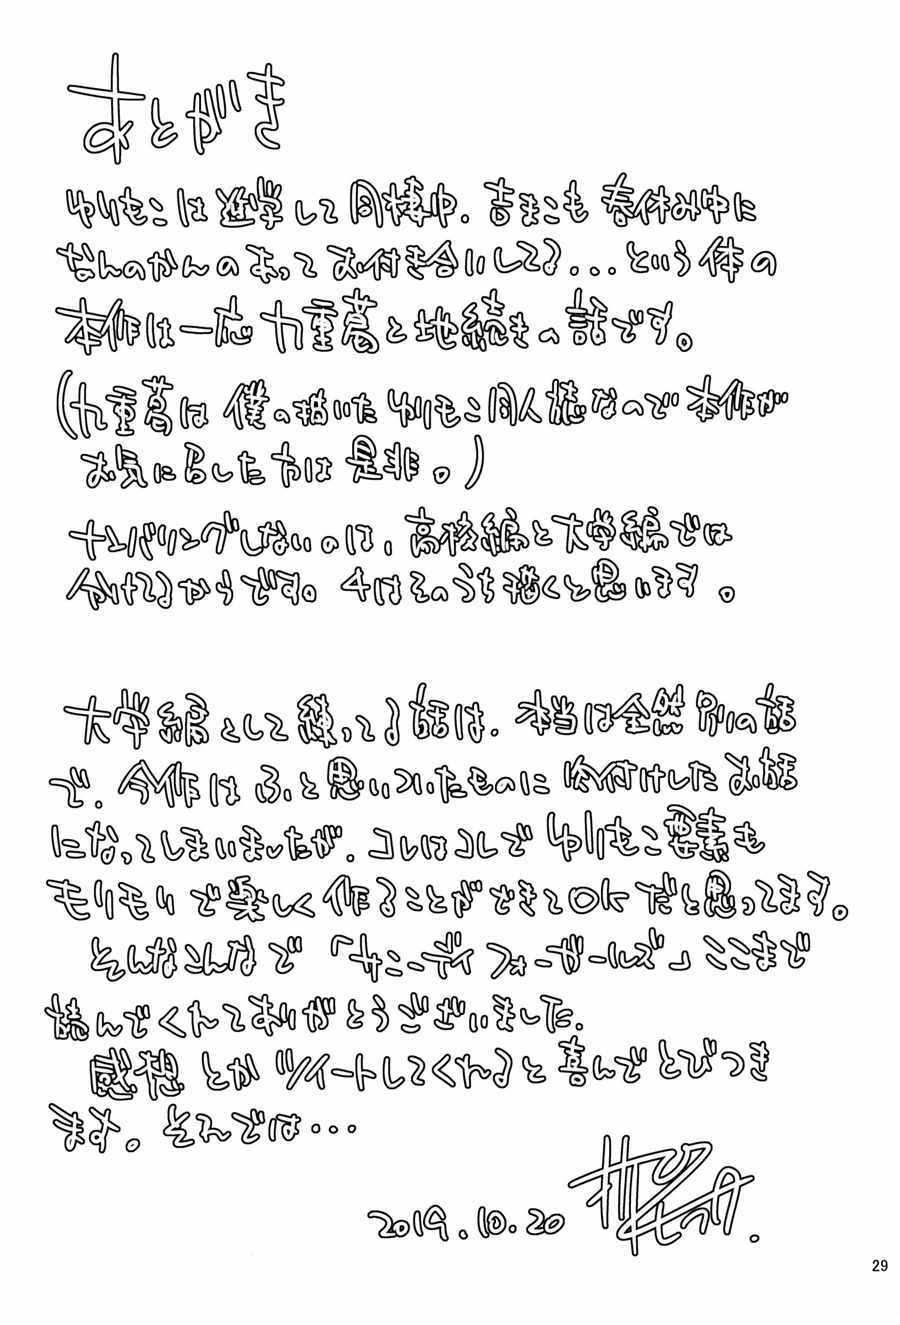 あとがき
ゆりもこは進学して同棲中、吉まこも春休み中に
なんのかんのあってお付き合いしてる...という体の
本作は一応九重葛と地続きの話です。
(九重葛は僕の描いたゆりもこ同人誌なので本作が
お気に召した方は是非。)
ナンバリングしないのは、高校編と大学編では
分けてるからです。4はそのうち描くと思います。
大学編として練ってる話は、本当は全然別の話
で、今作はふと思いついたものに肉付けしたお話
になってしまいましたが、コレはコレでゆりもこ要素も
モリモリで楽しく作ることができてOKだと思ってます。
そんなこんなで「サニーディフォーガールズ」ここまで
読んでくれてありがとうございました、
感想とかツイートしてくれると喜んでとびつき
ます。それでは...
2019.10.20
29